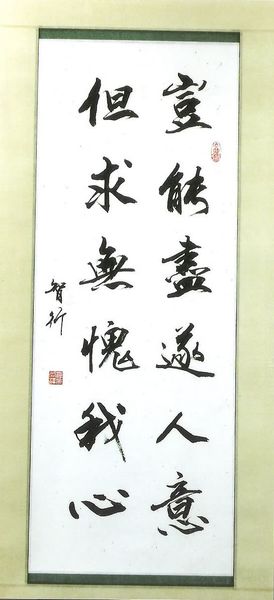 豈能盡遂人意
但求無愧我心
智衍